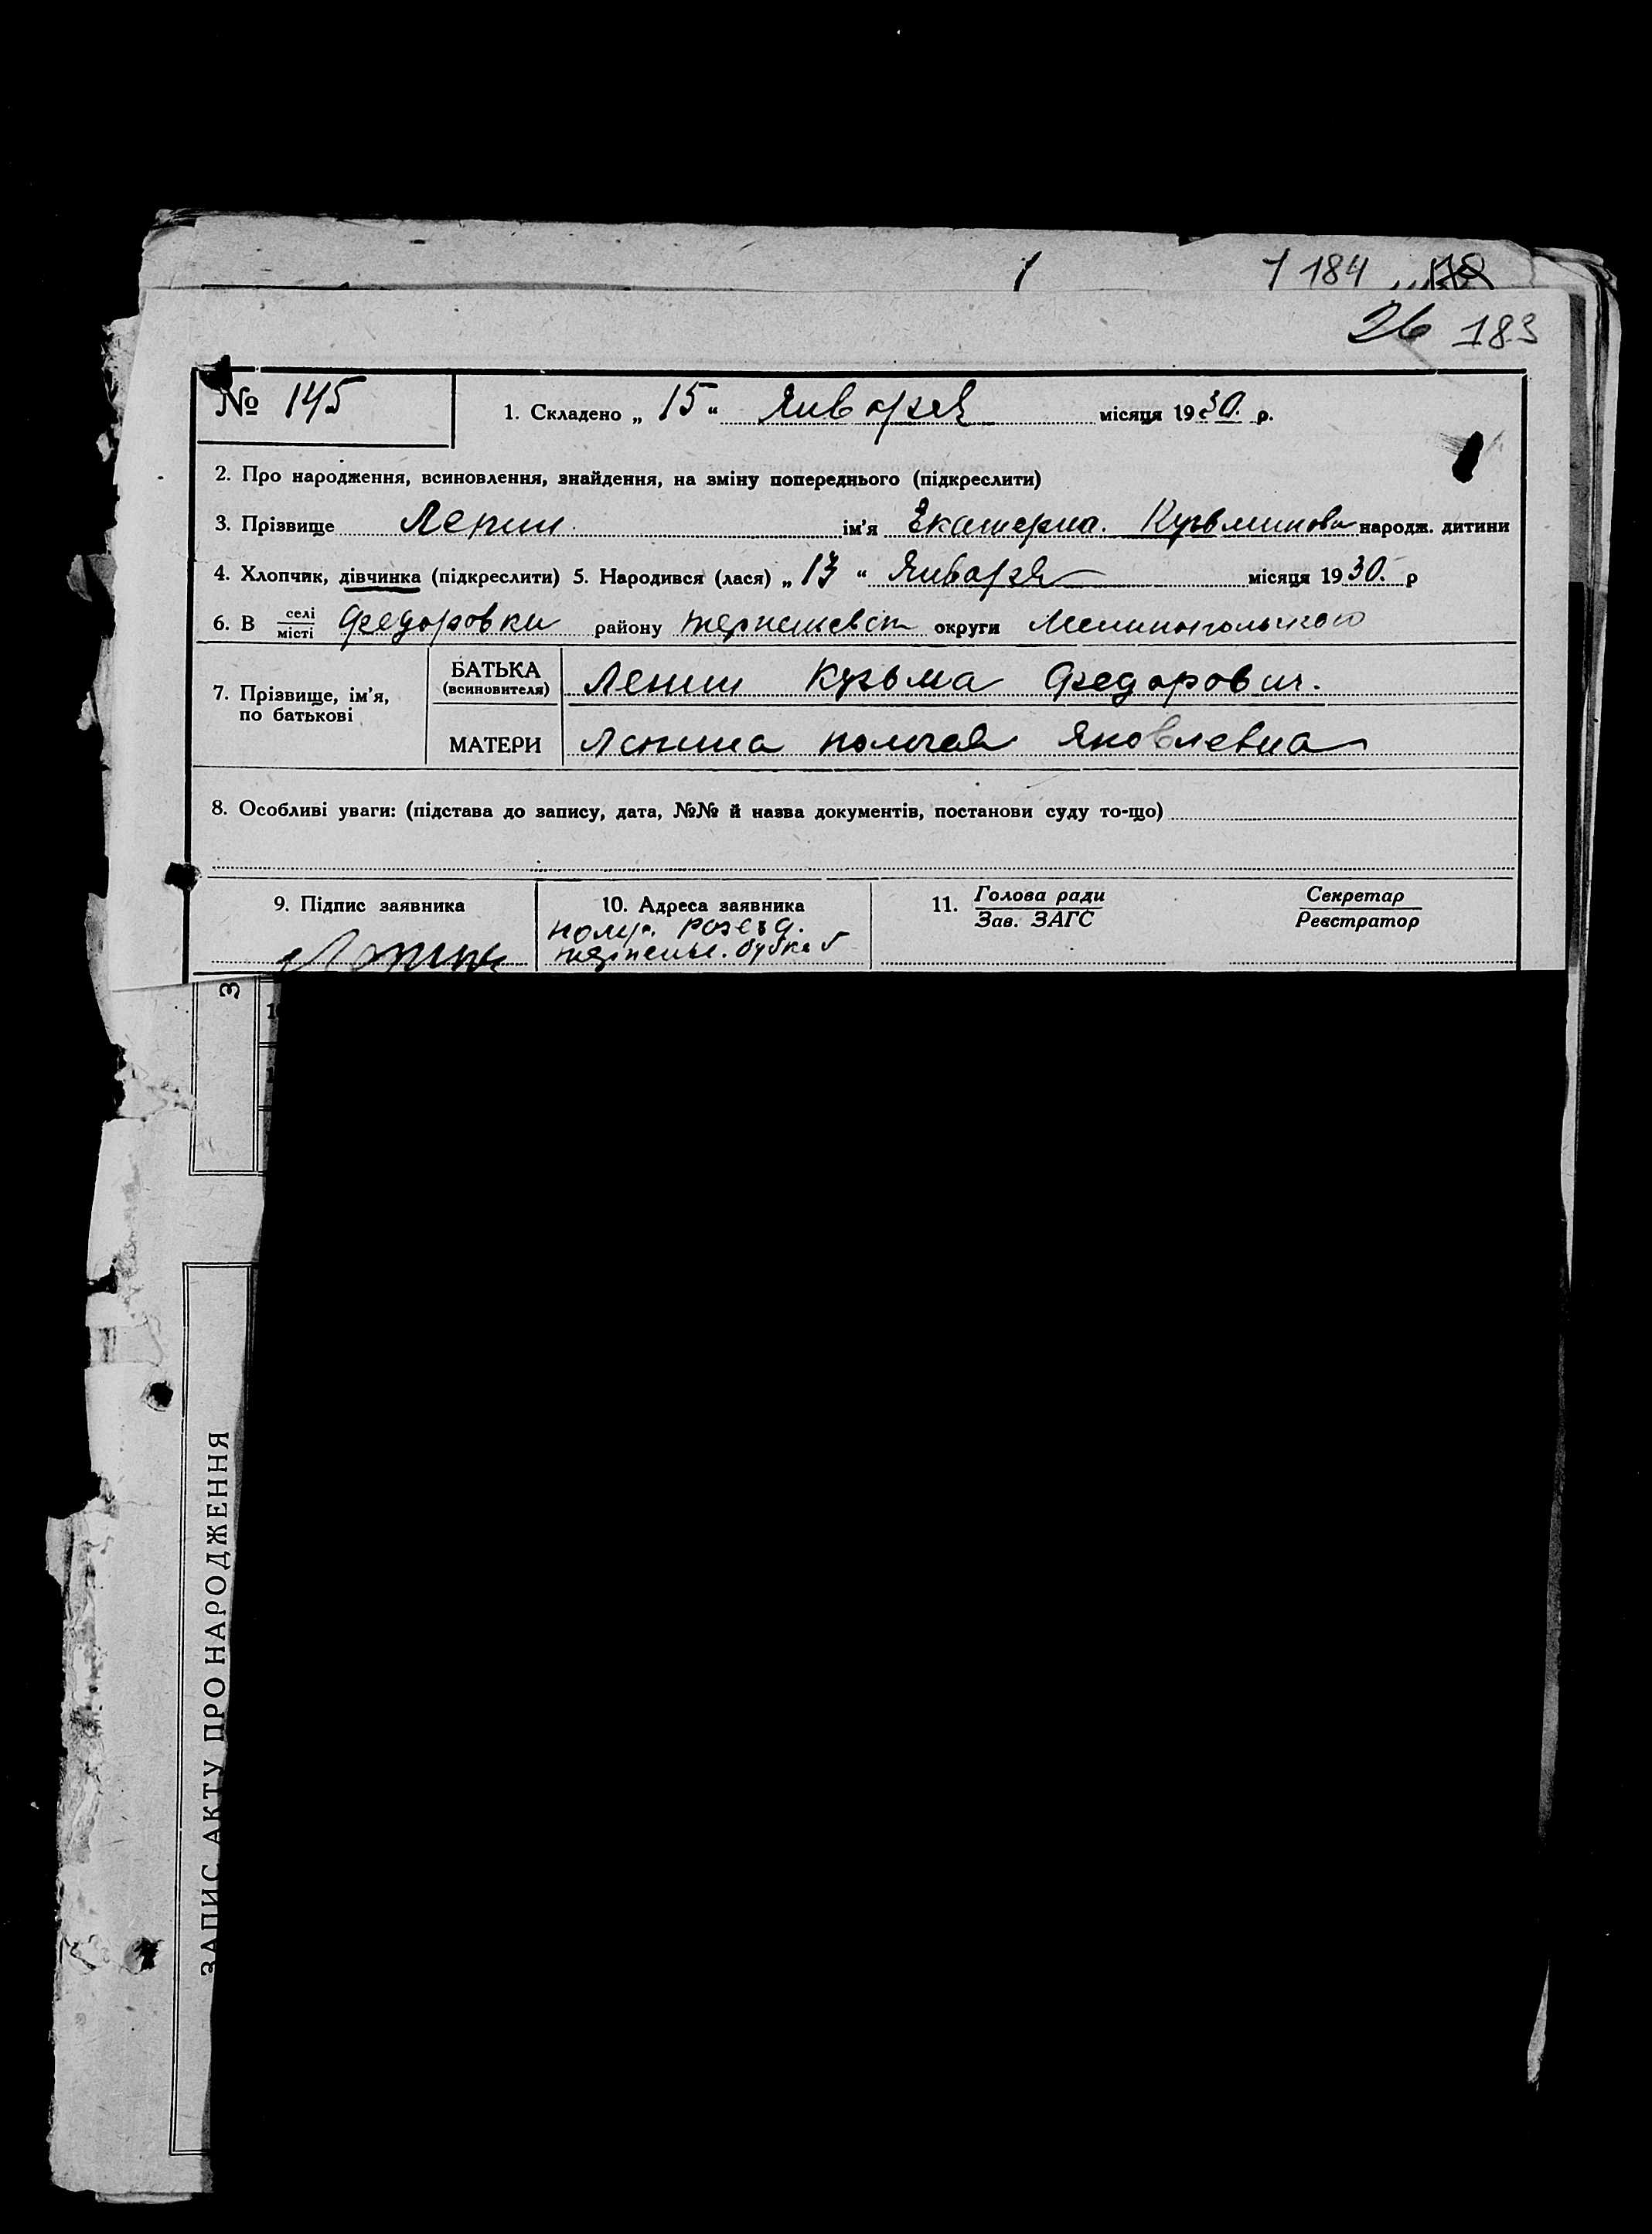 1 184
26 183
№ 145
1. Складено „ 15 “ Января місяця 1930. р.
2. Про народження, всиновлення, знайдення, на зміну попереднього (підкреслити)
3. Прізвище Лепин ім’я Екатерна. Кузьминовн народж. дитини
4. Хлопчик, дівчинка (підкреслити) 5. Народився (лася) „ 13 “ Января місяця 1930. р
6. В селі/місті Федоровки району округи
7. Прізвище, ім’я, по батькові
БАТЬКА (всиновителя) Лепин Кузьма Федорович.
МАТЕРИ Лепина Яковлевна
8. Особливі уваги: (підстава до запису, дата, №№ й назва документів, постанови суду то-що)
9. Підпис заявника
10. Адреса заявника
розезд.
будка 5
11. Голова ради/Зав. ЗАГС Секретар/Реєстратор
З
ЗАПИС АКТУ ПРО НАРОДЖЕННЯ